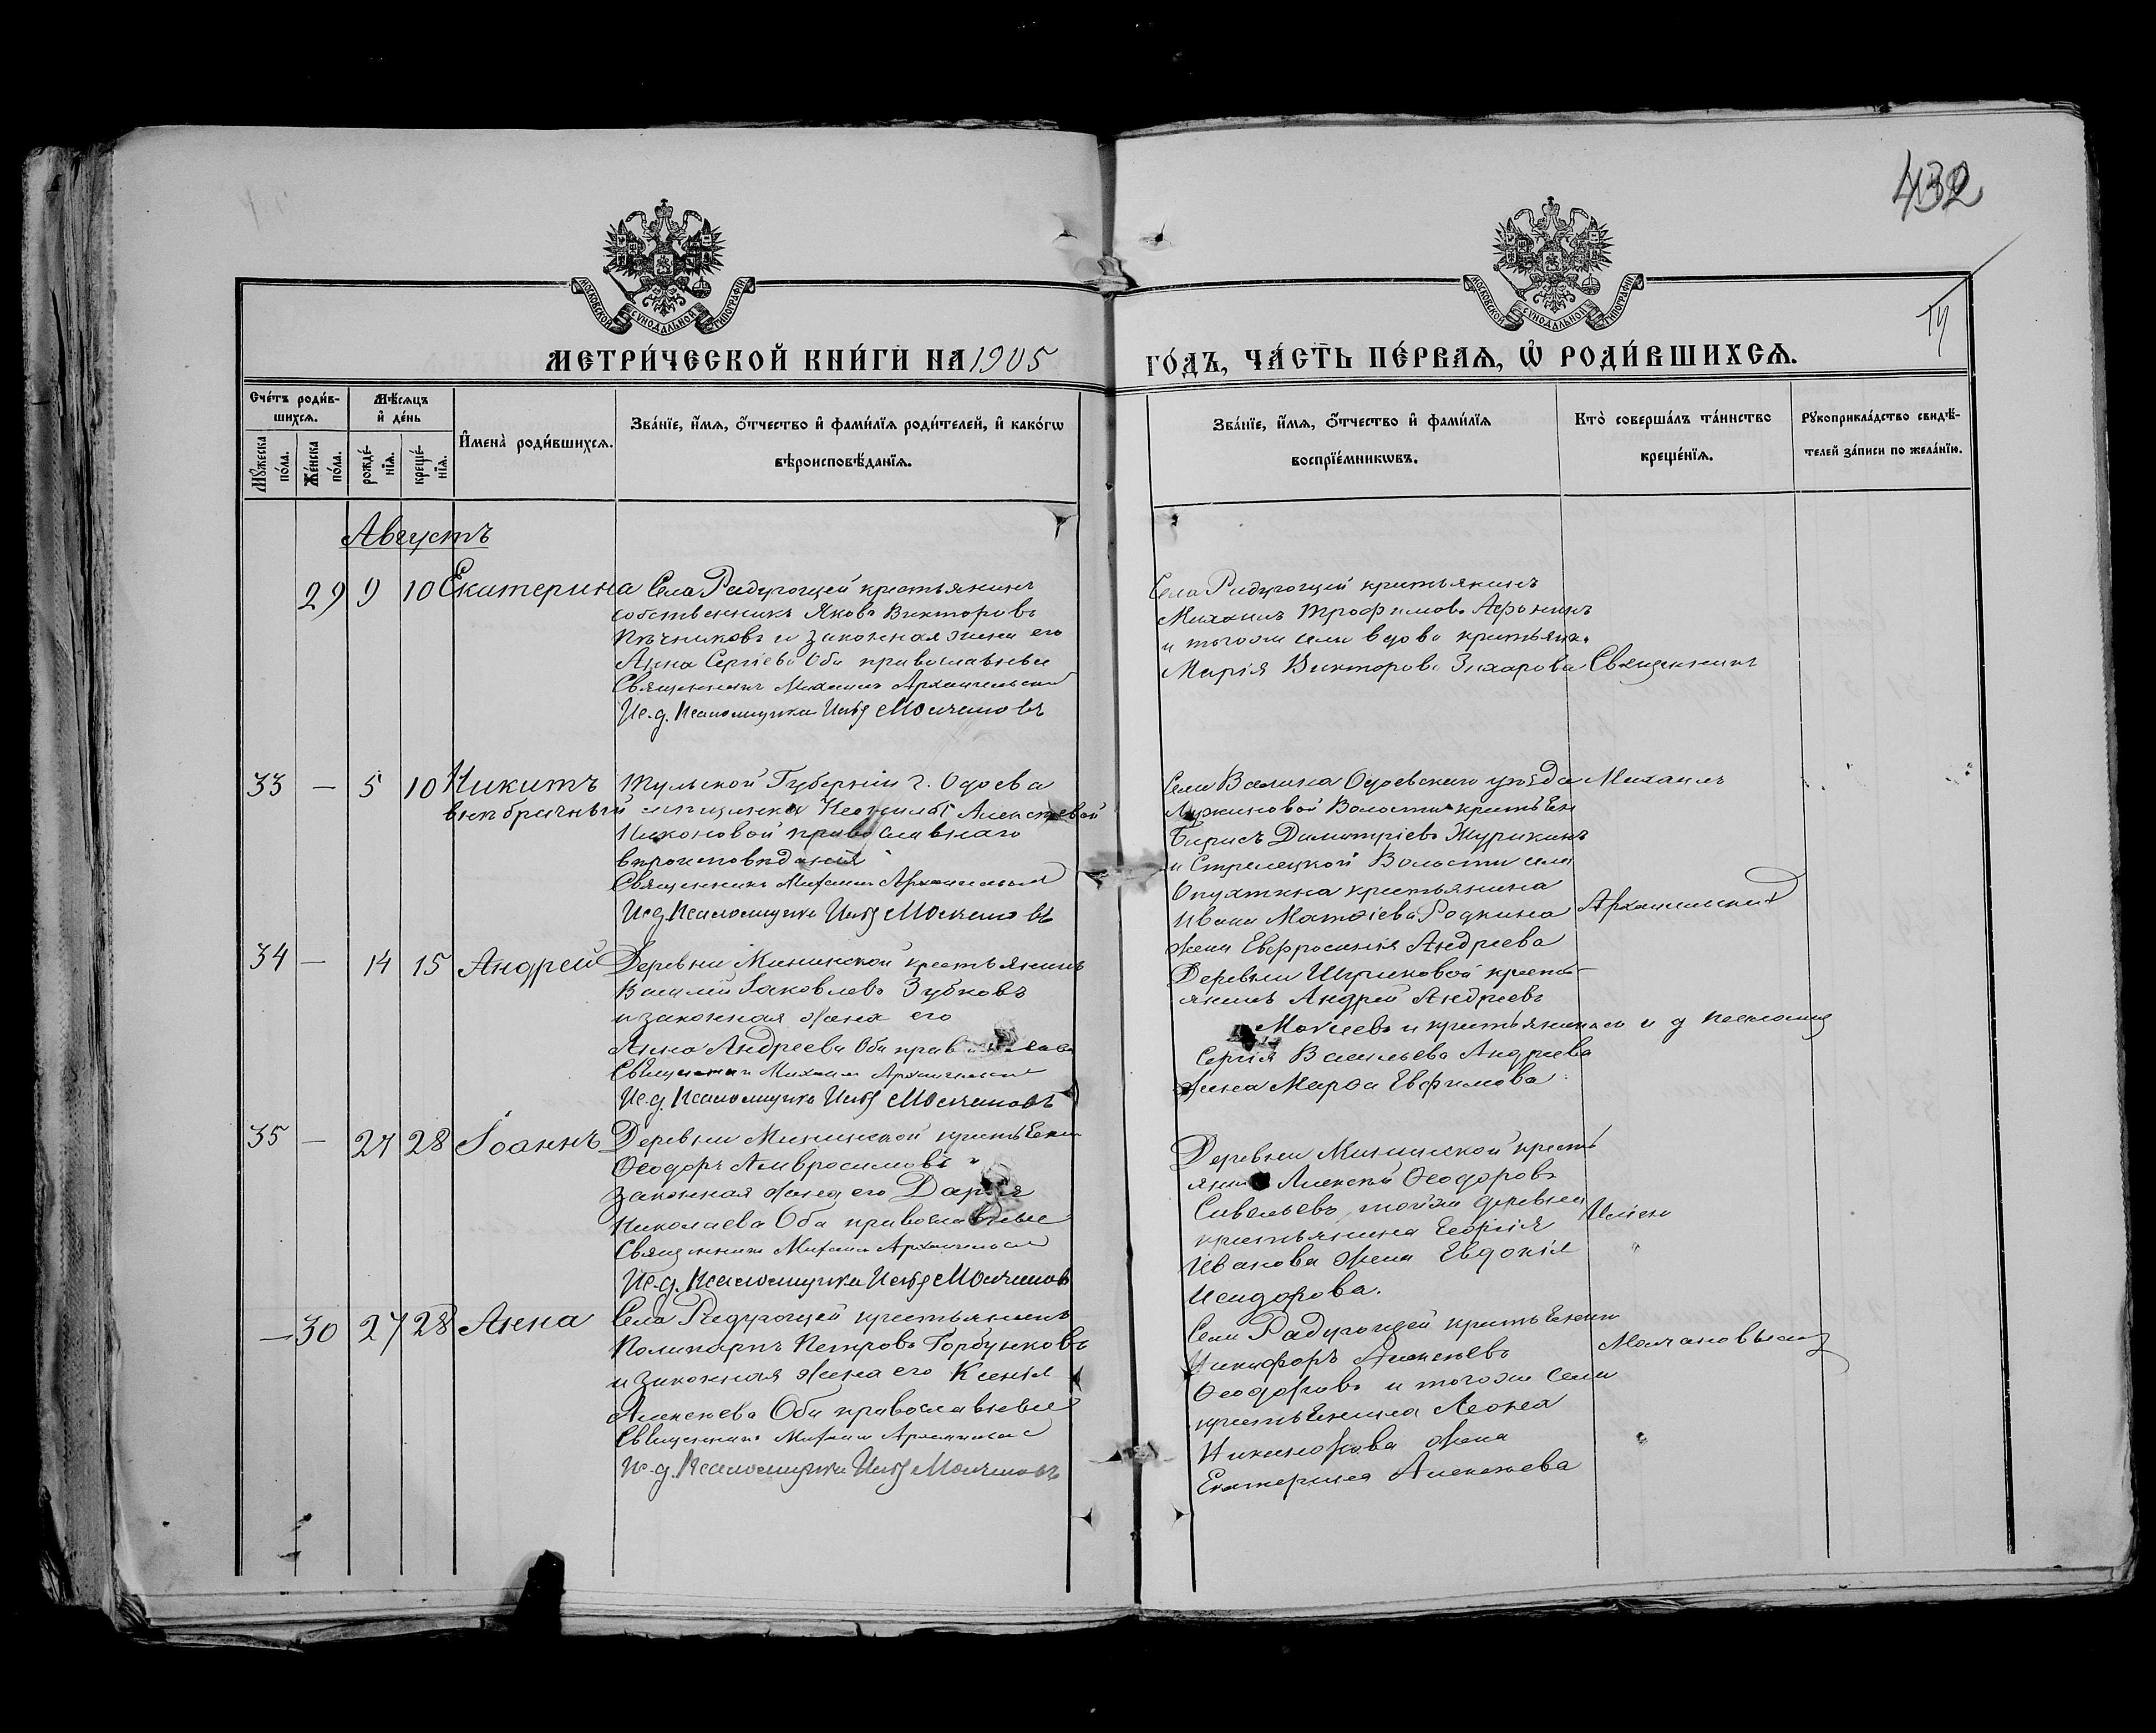 432
МОСКОВСКОЙ СѴНОДАЛЬНОЙ ТИПОГРАФІИ
МОСКОВСКОЙ СѴНОДАЛЬНОЙ ТИПОГРАФІИ
МЕТРИ́ЧЕСКОЙ КНИ́ГИ НА 1905
ГО́ДЪ, ЧА́СТЬ ПЕ́РВАѦ, Ѽ РОДИ́ВШИХСѦ.
Сче́тъ роди́в-
шихсѧ.
Мꙋ́жеска по́ла.
Же́нска по́ла.
Мѣ́сѧцъ
и҆ де́нь
рожде́-нїѧ.
креще́-нїѧ.
И҆мена̀ роди́вшихсѧ.
Зва́нїе, и҆́мѧ, ѻ҆́тчество и҆ фами́лїѧ роди́телей, и҆ како́гѡ
вѣроисповѣ́данїѧ.
Зва́нїе, и҆́мѧ, ѻ҆́тчество и҆ фами́лїѧ
воспрїе́мникѡвъ.
Кто̀ соверша́лъ та́инство
креще́нїѧ.
Рꙋкоприкла́дство свидѣ́-
телей за́писи по жела́нїю.
Августъ
29 9 10 Екатерина
Села Радугощей крестьянинъ
собственникъ Яковъ Викторовъ
Пѣчниковъ и законная жена его
Анна Сергіева Оба православные
Священникъ Михаилъ Архангельскій
И.д. Псаломщика Илья Молчановъ
Села Радугощей крестьянинъ
Михаилъ Трофимовъ Афонинъ
и тогоже села вдова крестьянк.
Марія Викторова Захарова
Священникъ
33 — 5 10 Никитъ
внѣбрачный
Тульской Губерніи г. Одоева
мѣщанки Алексѣевой
Никоновой православнаго
вѣроисповѣданія
Священникъ Михаилъ Архангельскій
И.д. Псаломщика Илья Молчановъ
Села Одоевскаго уѣзда
Волости крестьен
Борисъ Димитріевъ
и Стрелецкой Волости села
крестьянина
Ивана Матѳіева Родкина
жена Евфросинія Андреева
Михаилъ
Архангельскій
34 — 14 15 Андрей
Деревни Мининской крестьянинъ
Василій Іаковлевъ Зубковъ
и законная жена его
Анна Андреева Оба
Священникъ Михаилъ Архангельскій
И.д. Псаломщика Илья Молчановъ
Деревни кресть-
янинъ Андрей Андреевъ
Моисеевъ и крестьянина
Сергія Васильева Андреева
жена Марѳа Евфимова
и д псаломщ
35 — 27 28 Іоаннъ
Деревни Мининской крестьенин
Ѳеодоръ Амвросимовъ и
законная жена его Дарія
Николаева Оба православные
Священникъ Михаилъ Архангельскій
И.д. Псаломщика Илья Молчановъ
Деревни Мининской кресть
янинъ Алексѣй Ѳеодоровъ
Савельевъ, тойже деревни
крестьянина Георгія
Иванова жена Евдокія
Исидорова.
Иліею
— 30 27 28 Анна
Села Радугощей крестьянинъ
Поликарпъ Петровъ Горбунковъ
и законная жена его Ксенія
Алексѣева Оба православные
Священникъ Михаилъ Архангельскій
И.д. Псаломщика Илья Молчановъ
Села Радугощей крестьенинъ
Никифоръ Алексѣевъ
Ѳеодоровъ и тогоже села
крестьенина Леона
Никифорова жена
Екатерина Алексѣева
Молчановымъ